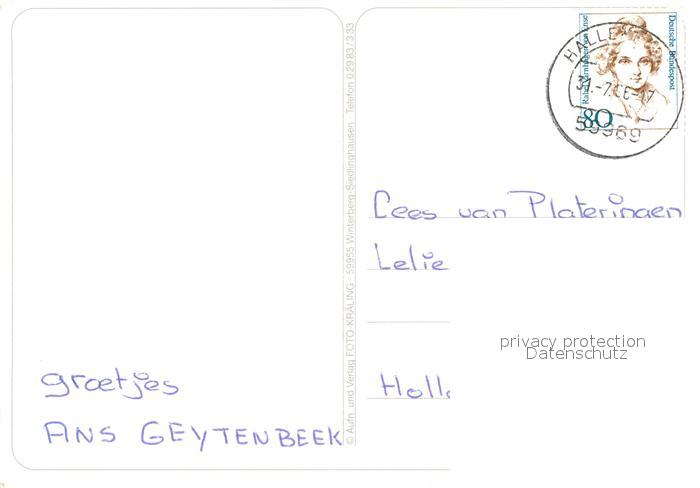 groetjes
ANS GEYTENBEEK
© Aufn. und Verlag FOTO-KRÄLING · 59955 Winterberg-Siedlinghausen · Telefon 0 29 83 / 3 33
Deutsche Bundespost
80
HALLE
59969
Cees van Plateringen
Lelie
Holl
privacy protection
Datenschutz